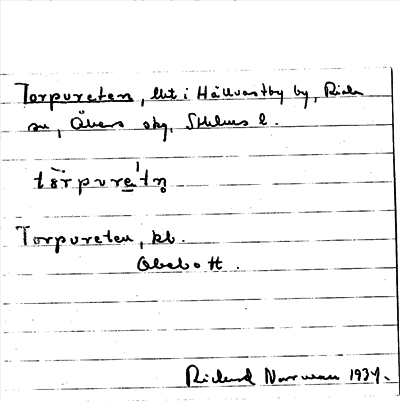 Torpureten, lht i Hållvastby by, Rimbo
sn, Åkers skg, Sthlms l.
tòrpure̱'tn̥
Torpureten, kb.
Obebott.
Rickard Norrman 1934.